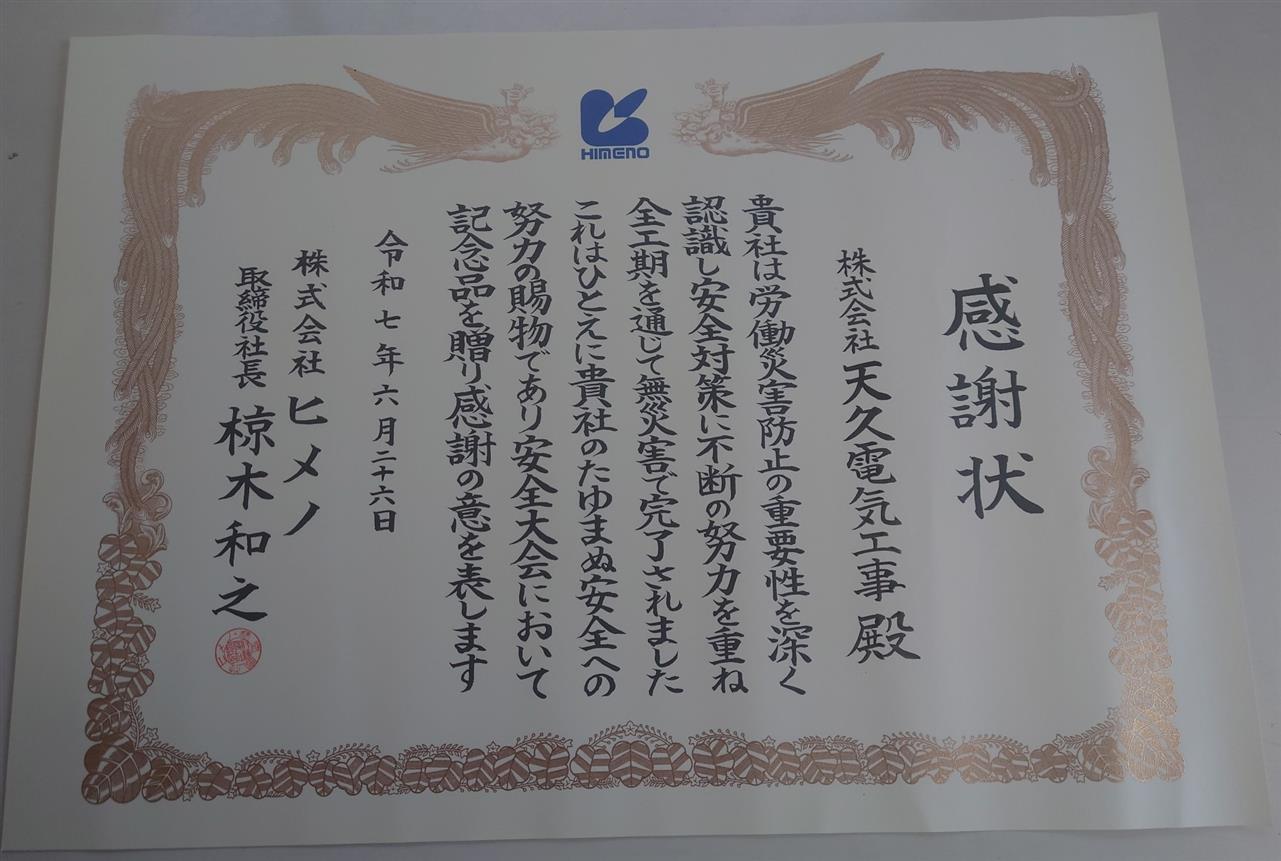 HIMENO
感謝状
株式会社 天久電気工事 殿
貴社は労働災害防止の重要性を深く
認識し安全対策に不断の努力を重ね
全工期を通じて無災害で完了されました
これはひとえに貴社のたゆまぬ安全への
努力の賜物であり安全大会において
記念品を贈り感謝の意を表します
令和七年六月二十六日
株式会社 ヒメノ
取締役社長 椋木和之